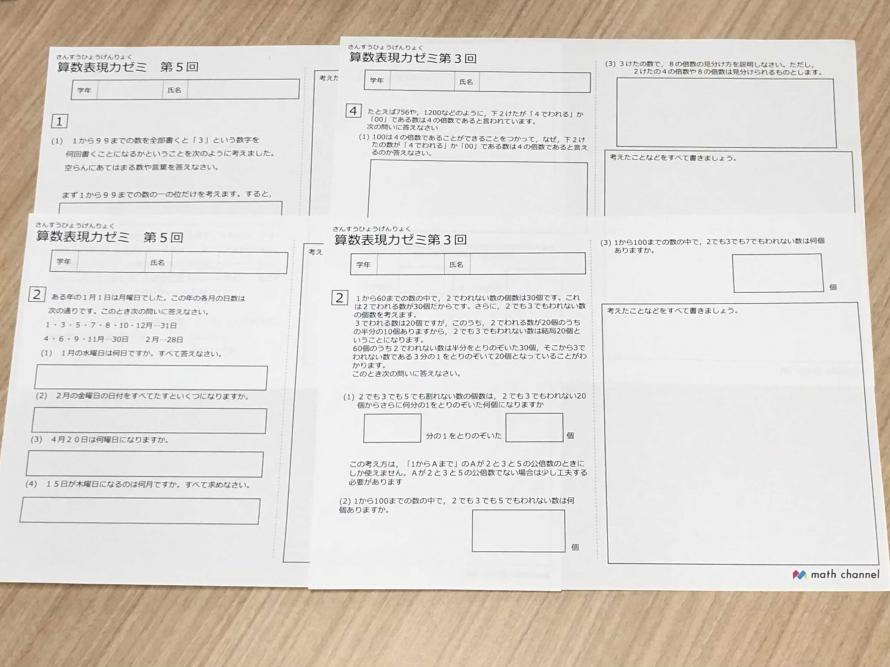 さんすうひょうげんりょく
算数表現力ゼミ 第5回
学年 氏名
1
(1) 1から99までの数を全部書くと「3」という数字を
何回書くことになるかということを次のように考えました。
空らんにあてはまる数や言葉を答えなさい。
まず1から99までの数の一の位だけを考えます。すると、
考えた
さんすうひょうげんりょく
算数表現力ゼミ第3回
学年 氏名
4
たとえば756や、1200などのように、下2けたが「4でわれる」か
「00」である数は4の倍数であると言われています。
次の問いに答えなさい
(1) 100は4の倍数であることができることをつかって、なぜ、下2け
たの数が「4でわれる」か「00」である数は4の倍数であると言え
るのか答えなさい。
(3) 3けたの数で、8の倍数の見分け方を説明しなさい。ただし、
2けたの4の倍数や8の倍数は見分けられるものとします。
考えたことなどをすべて書きましょう。
さんすうひょうげんりょく
算数表現力ゼミ 第5回
学年 氏名
2
ある年の1月1日は月曜日でした。この年の各月の日数は
次の通りです。このとき次の問いに答えなさい。
1・3・5・7・8・10・12月…31日
4・6・9・11月…30日 2月…28日
(1) 1月の水曜日は何日ですか。すべて答えなさい。
(2) 2月の金曜日の日付をすべてたすといくつになりますか。
(3) 4月20日は何曜日になりますか。
(4) 15日が木曜日になるのは何月ですか。すべて求めなさい。
考え
さんすうひょうげんりょく
算数表現力ゼミ第3回
学年 氏名
2
1から60までの数の中で、2でわれない数の個数は30個です。これ
は2でわれる数が30個だからです。さらに、2でも3でもわれない数
の個数を考えます。
3でわれる数は20個ですが、このうち、2でわれる数が20個のうち
の半分の10個ありますから、2でも3でもわれない数は結局20個と
いうことになります。
60個のうち2でわれない数は半分をとりのぞいた30個、そこから3で
われない数である3分の1をとりのぞいて20個となっていることがわ
かります。
このとき次の問いに答えなさい。
(1) 2でも3でも5でも割れない数の個数は、2でも3でもわれない20
個からさらに何分の1をとりのぞいた何個になりますか
分の1をとりのぞいた 個
この考え方は、「1からAまで」のAが2と3と5の公倍数のときに
しか使えません。Aが2と3と5の公倍数でない場合は少し工夫する
必要があります
(2) 1から100までの数の中で、2でも3でも5でもわれない数は何
個ありますか。
個
(3) 1から100までの数の中で、2でも3でも7でもわれない数は何個
ありますか。
個
考えたことなどをすべて書きましょう。
math channel